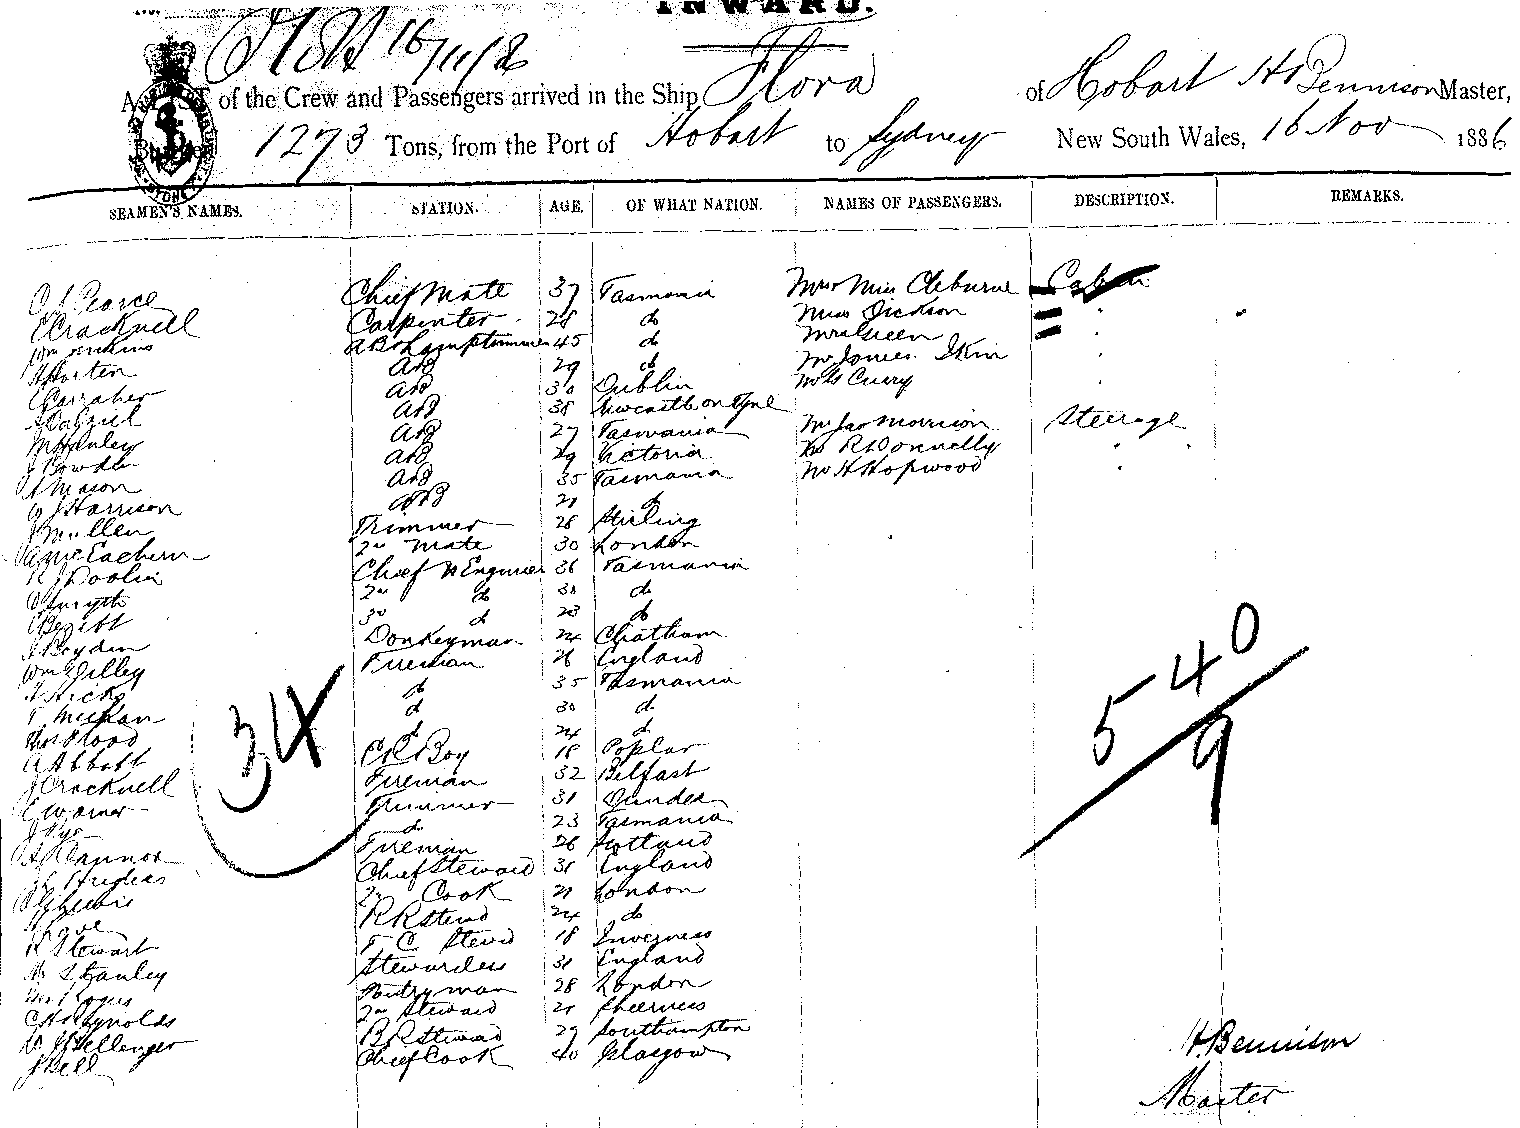 INWARD.
16/11/6
A LIST of the Crew and Passengers arrived in the Ship Flora of Hobart H Bennison Master,
1273 Tons, from the Port of Hobart to Sydney New South Wales, 16 Nov 1886
SEAMEN'S NAMES. STATION. AGE. OF WHAT NATION. NAMES OF PASSENGERS. DESCRIPTION. REMARKS.
Pearce Chief Mate 37 Tasmania Mrs Miss Cleburne Cabin
E Cracknell Carpenter 28 do Miss Dickson
AB & Lamptrimmer 45 do Mrs Green
AB 29 do Mr James
AB 30 Dublin Curry
AB 38 Newcastle on Tyne
M Hanley AB 27 Tasmania Mr Jas Morrison Steerage
J Bowden AB 29 Victoria R Donnelly
Mason AB 35 Tasmania Mr H Hopwood
W J Harrison AB 21 do
J Mullen Trimmer 28 Stirling
2nd Mate 30 London
R J Doolin Chief Engineer 36 Tasmania
Smyth 2nd do 30 do
3rd do 23 do
J Boyden Donkeyman 24 Chatham
Wm Gilley Fireman 26 England
Hicks do 35 Tasmania
T Meehan do 30 do
Flood do 24 do
A Abbott Boy 18 Poplar
J Cracknell Fireman 32 Belfast
E Warner Trimmer 31 Dundee
J Pye do 23 Tasmania
Connor Fireman 26 Scotland
Hughes Chief Steward 31 England
Lewis 2nd Cook 21 London
RR Stewd 24 do
R Stewart F C Stewd 18 Inverness
Stanley Stewardess 31 England
Pantryman 28 London
C H Reynolds 2nd Steward 21 Sheerness
Sellenger BR Steward 29 Southampton
J Bell Chief Cook 40 Glasgow
34
5 40
9
H. Bennison
Master